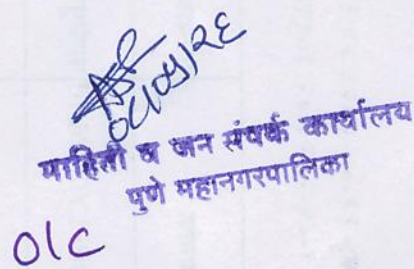 ०८/०५/२६
माहिती व जन संपर्क कार्यालय
पुणे महानगरपालिका
O/C